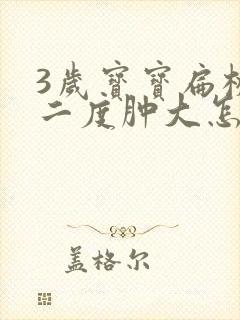 3歲寶寶扁
二度肿大怎
盖格尔